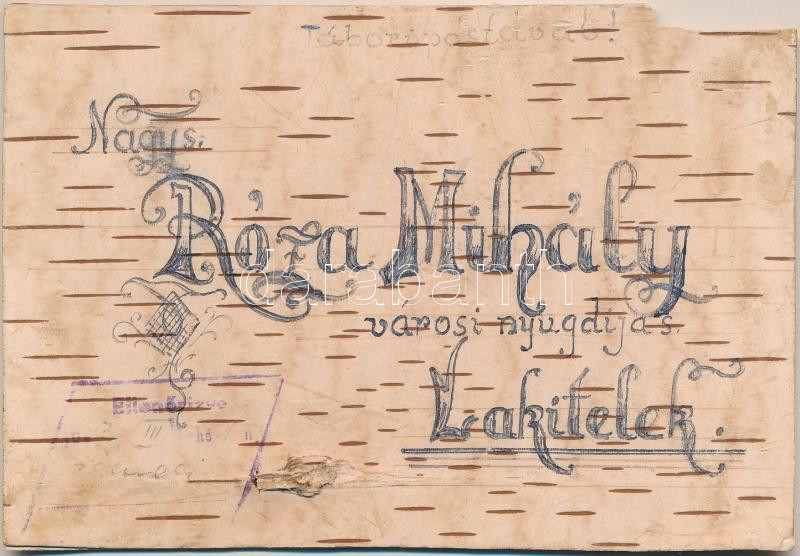 Tábori postával!
Nagys.
Róza Mihály
városi nyugdíjas
Lakitelek.
Ellenőrizve
III
hó
n
darabanth